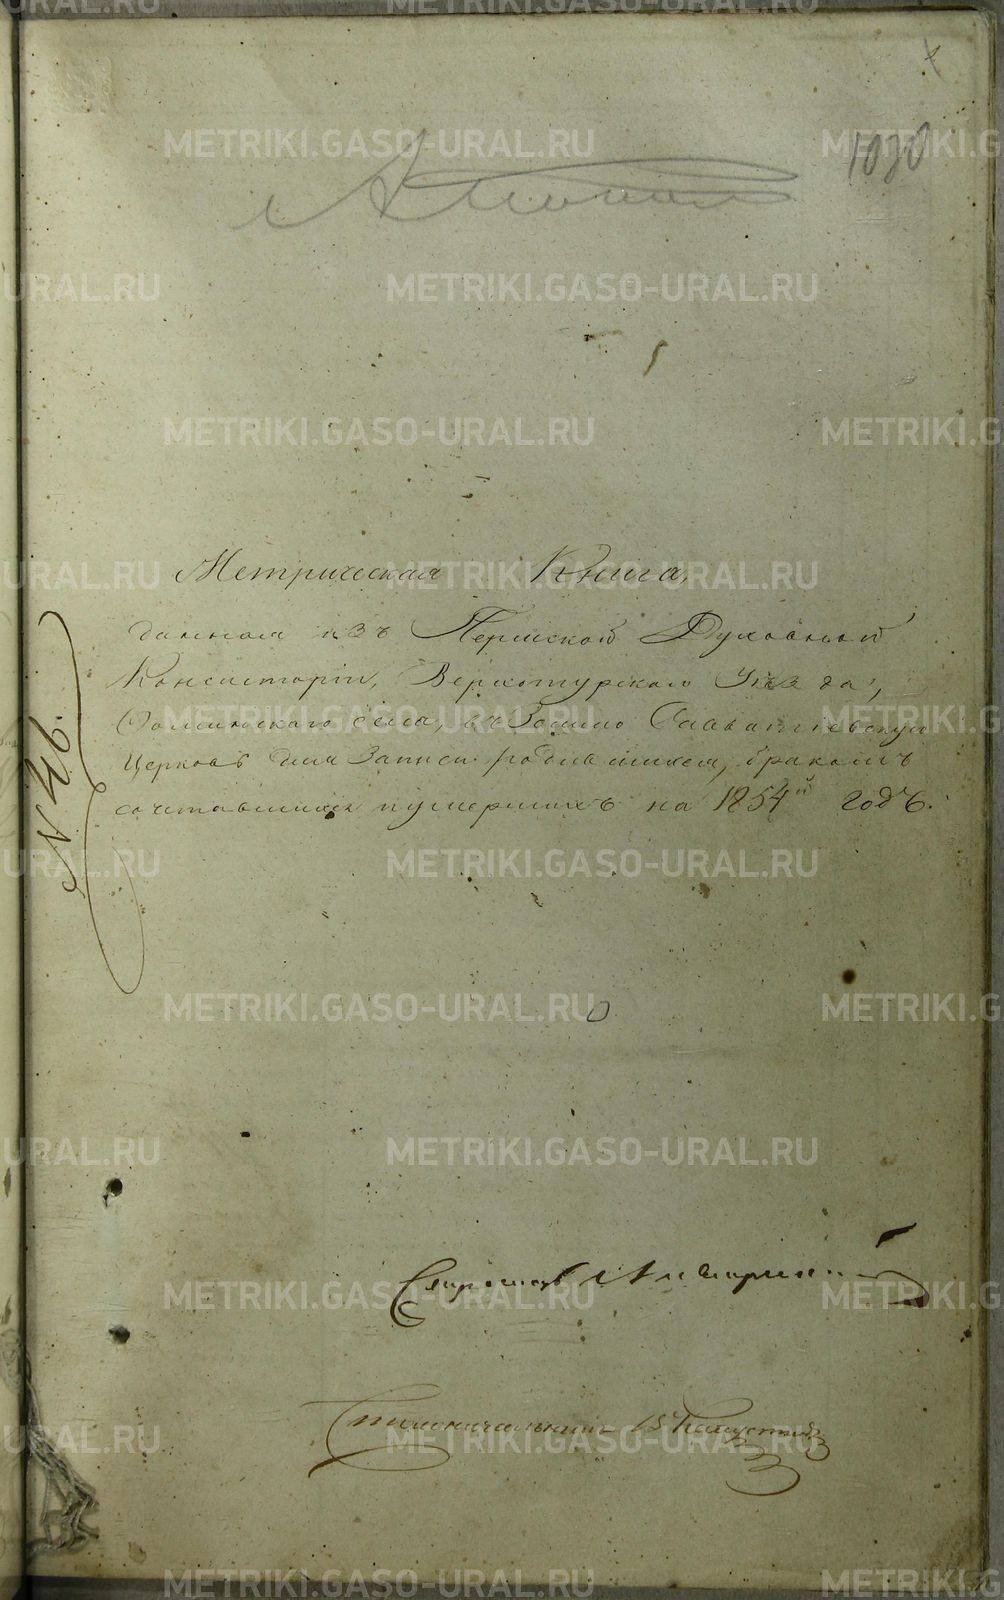 1030
Метрическая Книга,
данная изъ Пермской Духовной
Консисторіи, Верхотурскаго Уѣзда,
Фоминскаго села, въ Зосимо Савватіевскую
Церковь для Записи родившихся, бракомъ
сочетавшихся и умершихъ на 1854й годъ.
N 46.
Столоначальникъ
METRIKI.GASO-URAL.RU